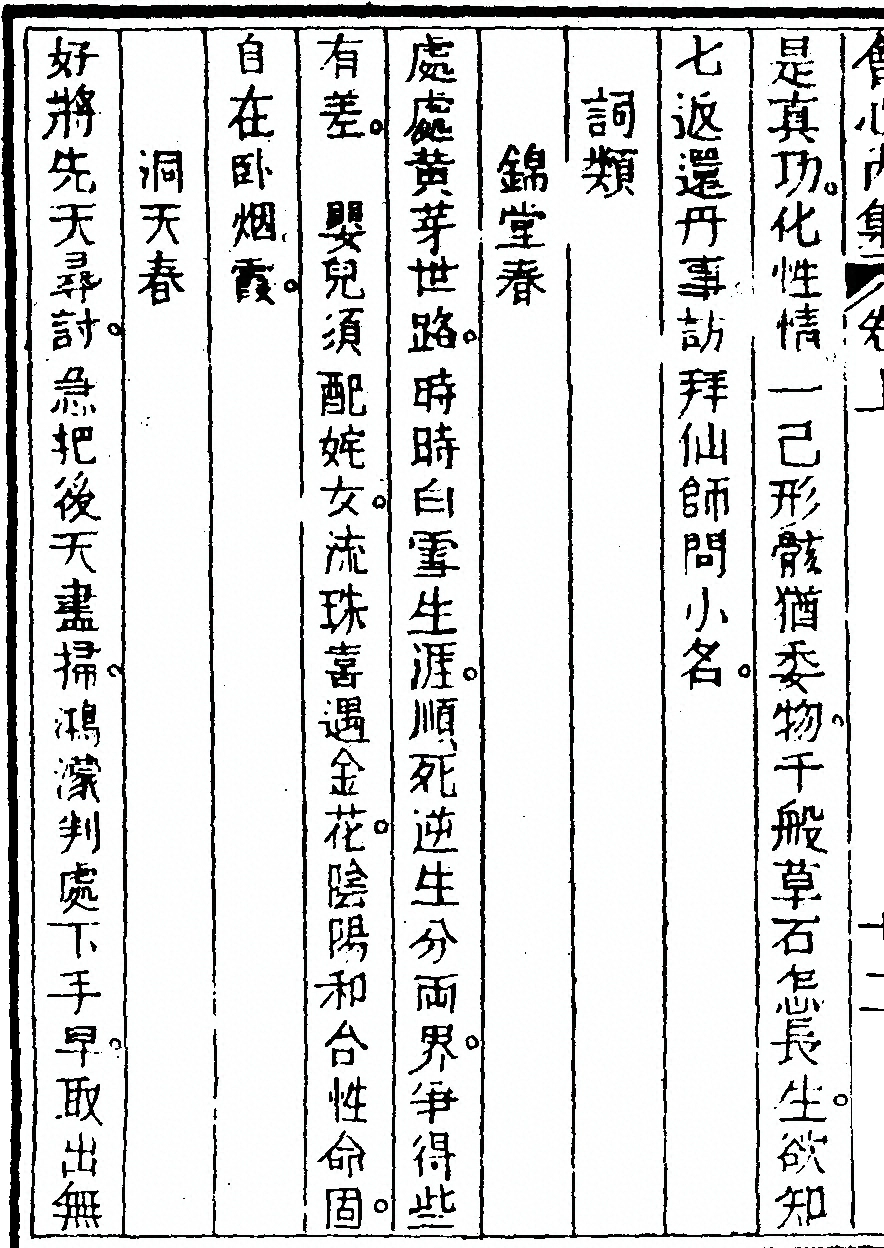 會心內集 卷上 十二
是真功。化性情一己形骸猶委物。千般草石怎長生。欲知
七返還丹事訪拜仙師問小名。
詞類
錦堂春
處處黃芽世路。時時白雪生涯。順死逆生分兩界。爭得些
有差。 嬰兒須配姹女。流珠喜遇金花。陰陽和合性命固。
自在卧烟霞。
洞天春
好將先天尋討。急把後天盡掃。鴻濛判處下手早。取出無